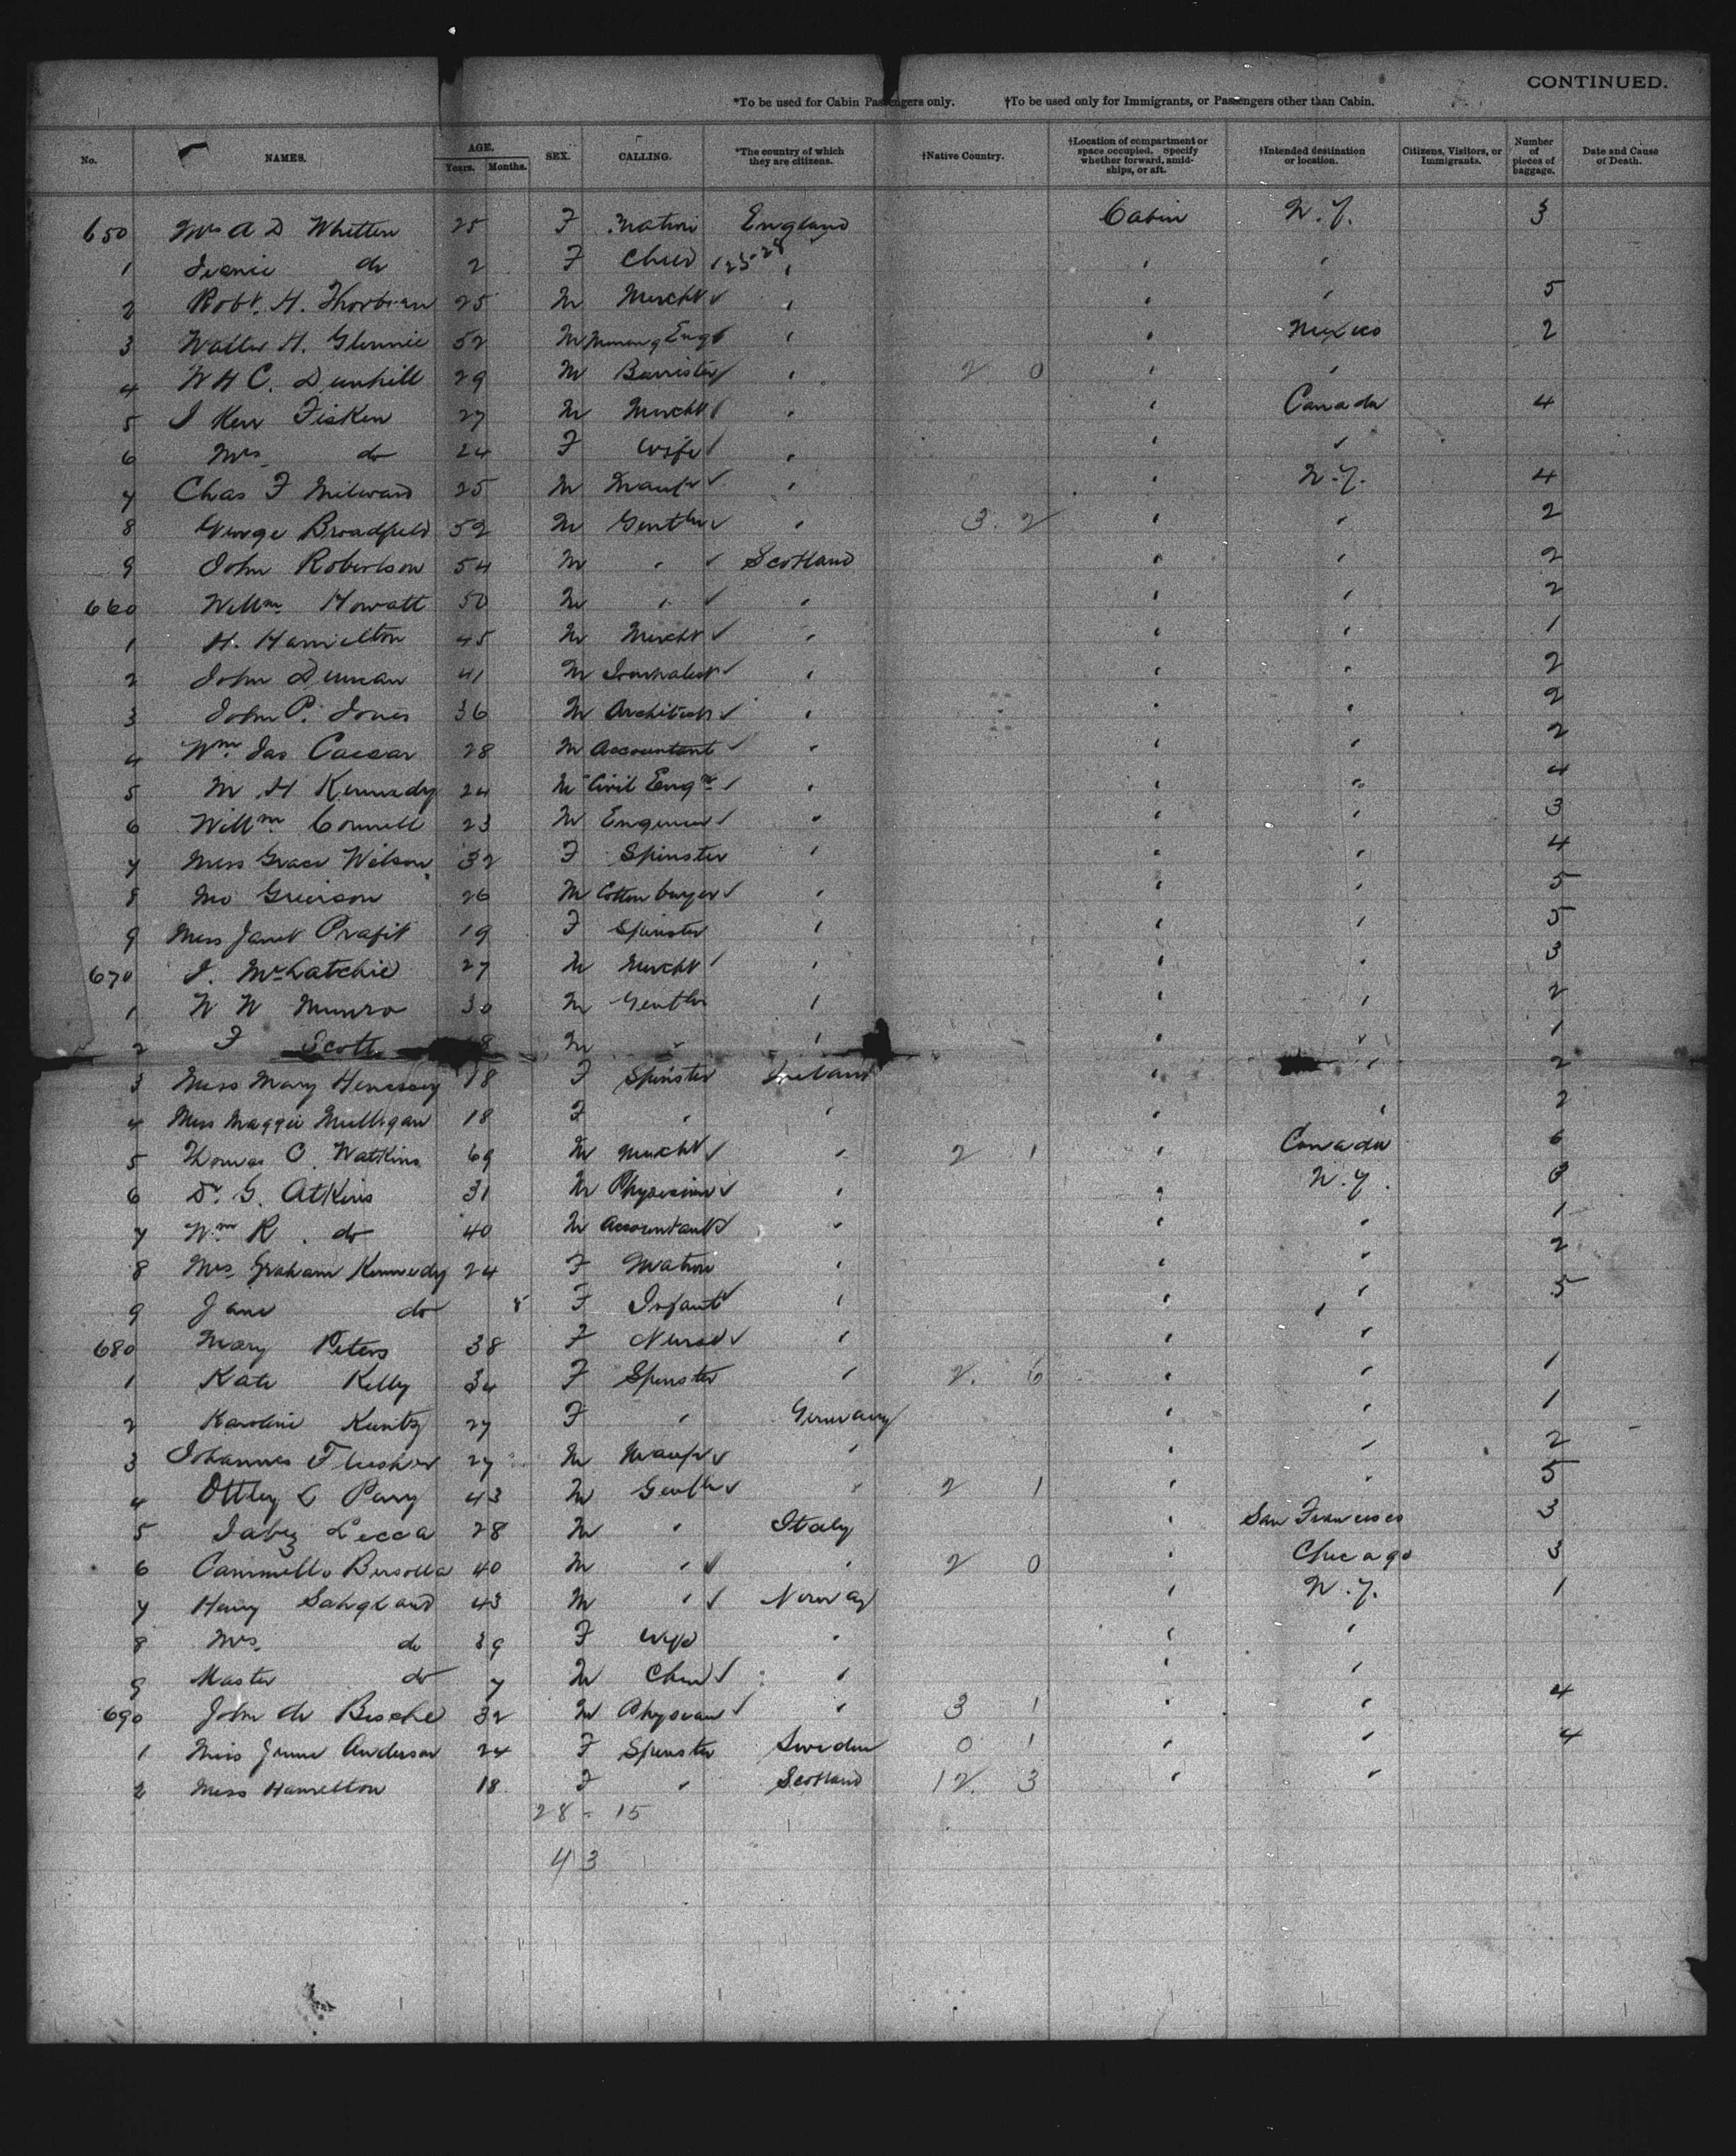 CONTINUED.
*To be used for Cabin Passengers only. †To be used only for Immigrants, or Passengers other than Cabin.
No. NAMES. AGE. Years. Months. SEX. CALLING. *The country of which they are citizens. †Native Country. †Location of compartment or space occupied. Specify whether forward, amidships, or aft. †Intended destination or location. Citizens, Visitors, or Immigrants. Number of pieces of baggage. Date and Cause of Death.
650 Mrs A D Whitten 25 F Matron England Cabin N.Y. 3
1 do 2 F Child 123-28 "
2 Robt. H. 25 M Mercht " 5
3 Walter H. Glennie 52 M Mining Engr " Mexico 2
4 W H C. Dunhill 29 M Barrister " 2 0 "
5 J Kerr Fisken 27 M Mercht " Canada 4
6 Mrs do 24 F Wife " "
7 Chas F Milward 25 M Manufr " N.Y. 4
8 George Broadfield 52 M Gentln " 3. 2 " 2
9 John Robertson 54 M " Scotland " 2
660 Willm Howatt 50 M " " " 2
1 H. Hamilton 45 M Mercht " " 1
2 John Duncan 41 M Journalist " " 2
3 John P. Jones 36 M Architect " " 2
4 Wm Jas Caesar 28 M Accountant " " 2
5 M H Kennedy 24 M Civil Engr " " 4
6 Willm Connell 23 M Engineer " " 3
7 Miss Grace Wilson 32 F Spinster " " 4
8 Jno Grierson 26 M Cotton buyer " " 5
9 Miss Janet 19 F Spinster " " 5
670 J. McLatchie 27 M Mercht " " 3
1 W W Munro 30 M Gentln " " 2
2 F Scott 8 M " " " 1
3 Miss Mary Henessey 18 F Spinster Ireland " 2
4 Miss Maggie Mulligan 18 F " " " 2
5 Thomas C. Watkins 69 M Mercht " 2 1 " Canada 6
6 Dr. G. Atkins 31 M Physician " " N.Y. 3
7 Wm R. do 40 M Accountant " " 1
8 Mrs. Graham Kennedy 24 F Matron " " 2
9 Jane do 8 F Infant " " 5
680 Mary Peters 38 F Nurse " "
1 Kate Kelly 34 F Spinster " 2. 6 " 1
2 Karoline Kuntz 27 F " Germany " 1
3 Johannes 27 M Manufr " " 2
4 Ottley L Perry 43 M Gentln " 2 1 " 5
5 Jabez Lecca 28 M " Italy " San Francisco 3
6 Cammello 40 M " " 2 0 " Chicago 3
7 43 M " Norway " N.Y. 1
8 Mrs. do 39 F Wife " "
9 Master do 7 M Child " "
690 John de 32 M Physician " 3 1 " 4
1 Miss Anderson 24 F Spinster Sweden 0 1 " 4
2 Miss Hamilton 18 F " Scotland 12. 3 "
28 - 15
43